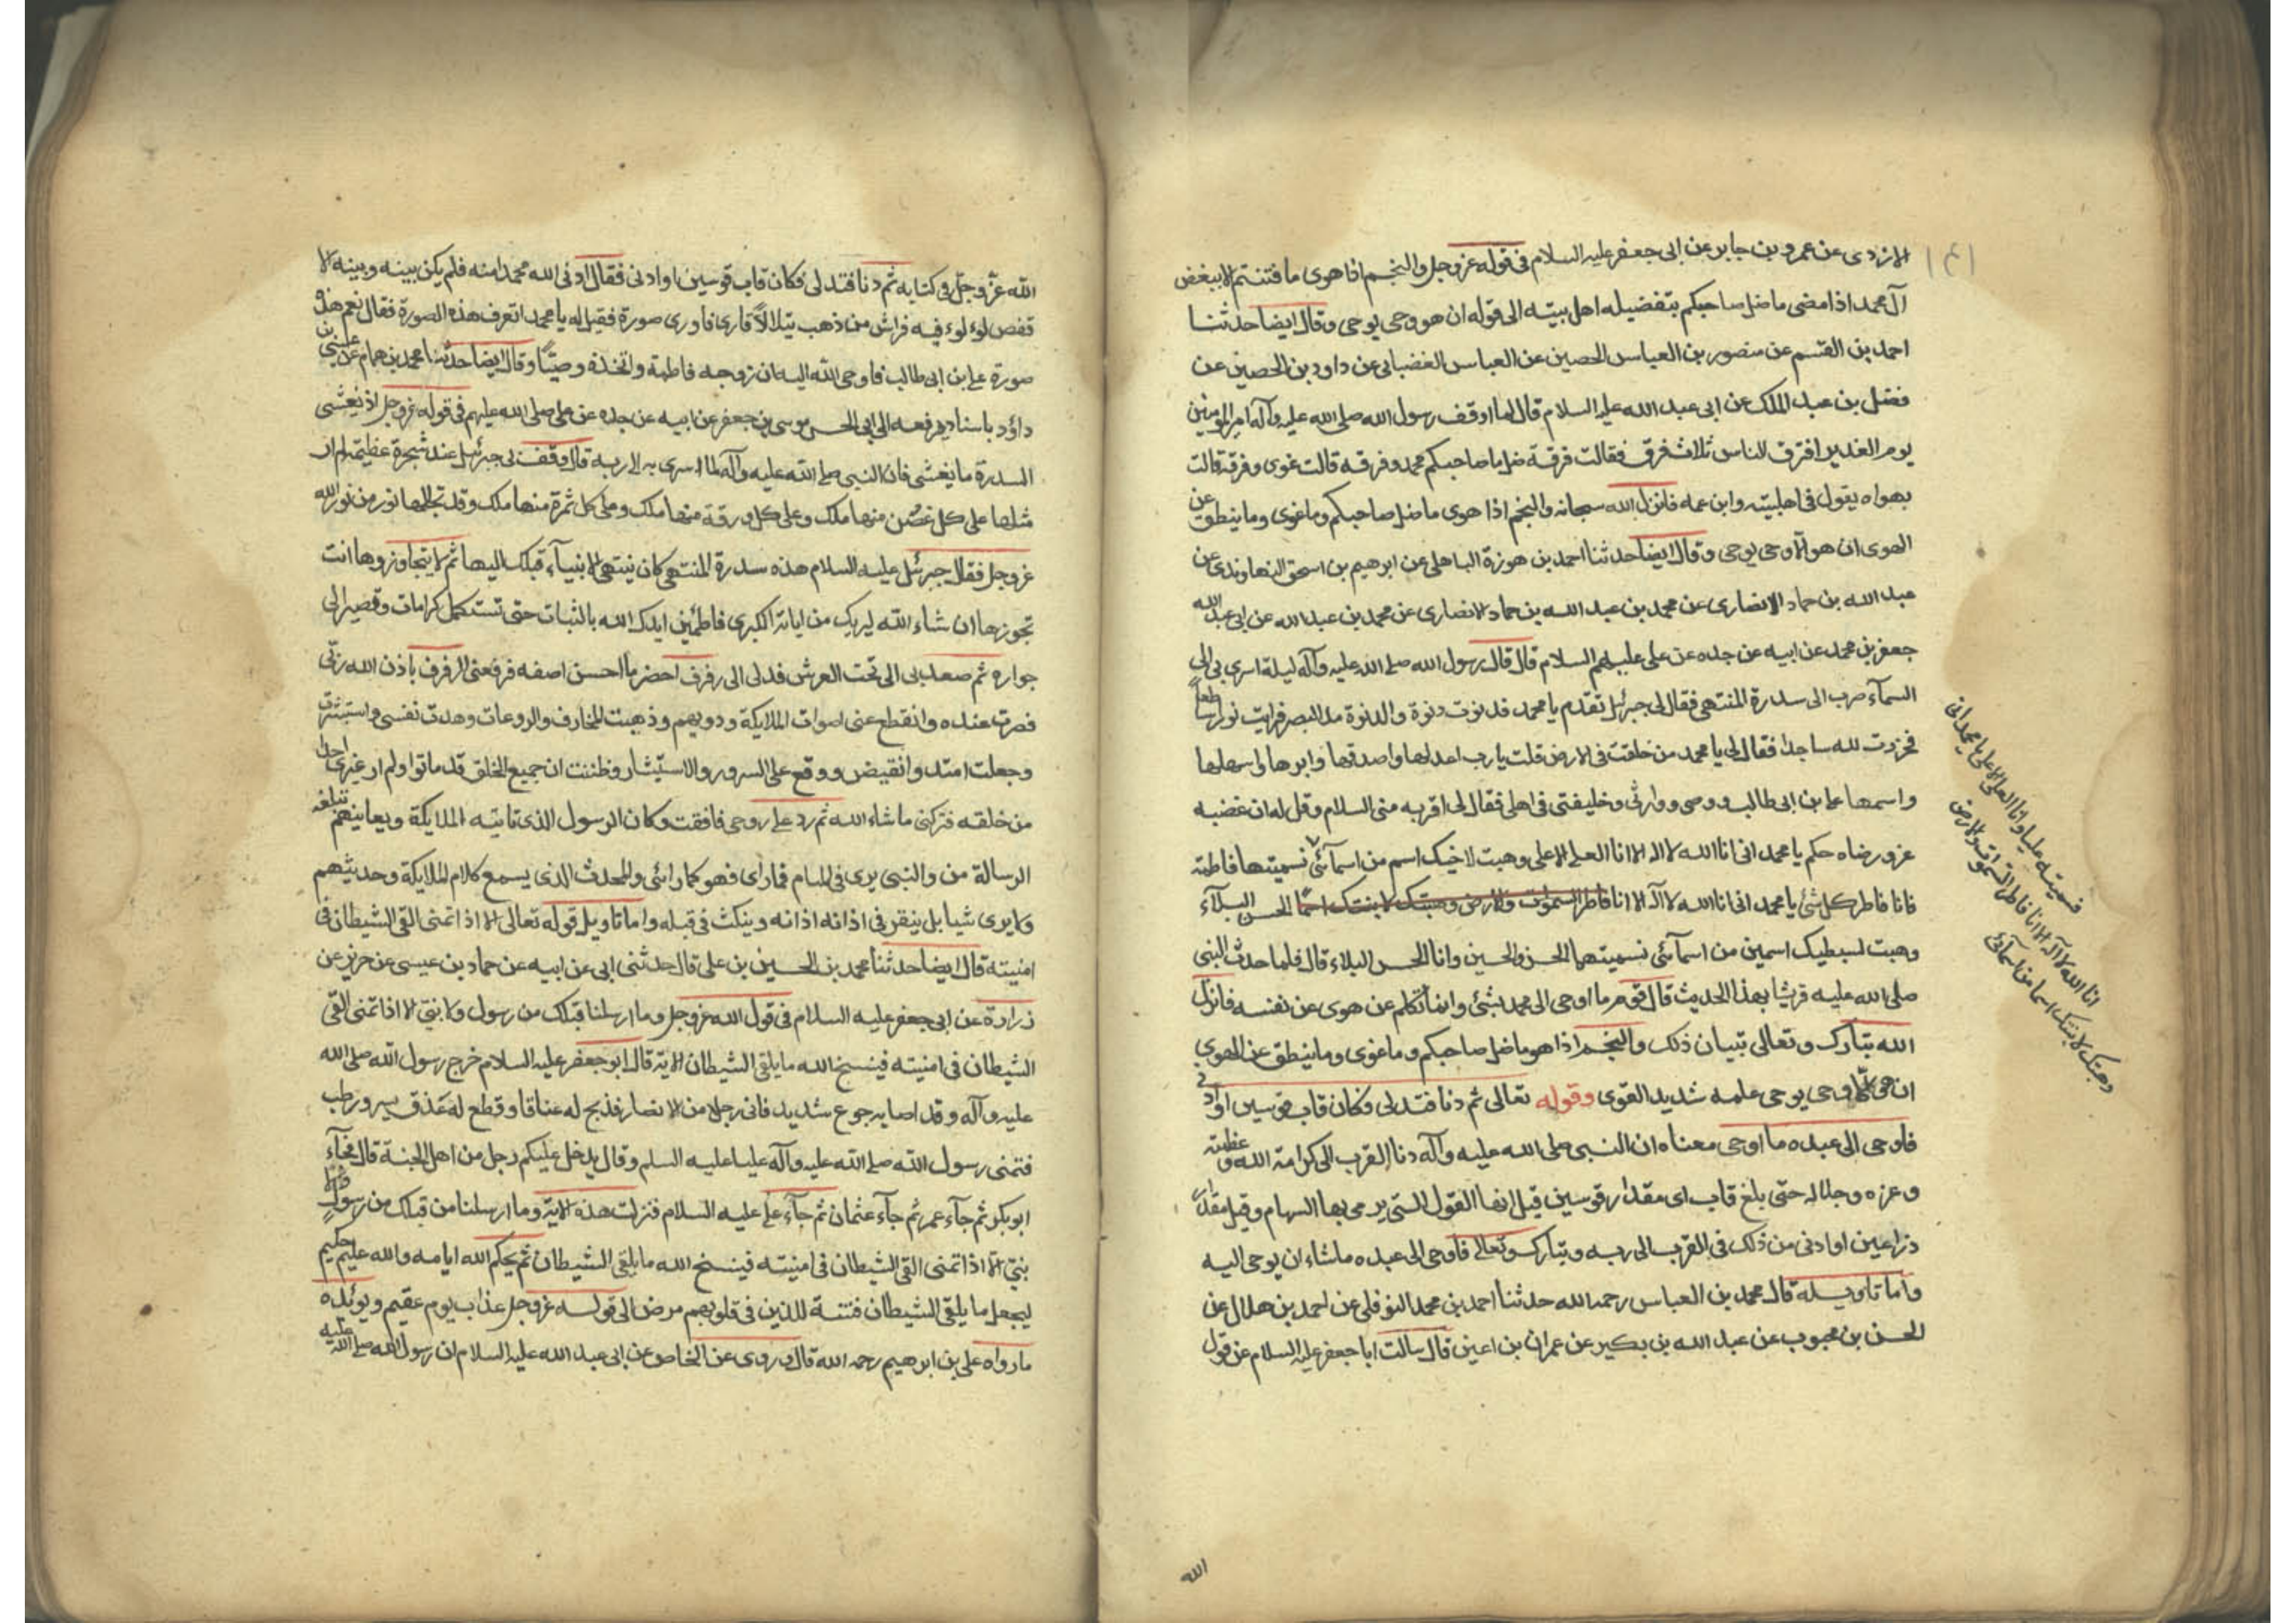 ١٤١
الازدى عن عمرو بن جابر عن ابى جعفر عليه السلام فى قوله عز وجل والنجم اذا هوى ما فتنتم الا ببغض
آل محمد اذا مضى ما ضل صاحبكم بتفضيله اهل بيته الى قوله ان هو وحى يوحى وقال ايضا حدثنا
احمد بن القسم عن منصور بن العباس الحصين عن العباس الغضبانى عن داود بن الحصين عن
فضل بن عبد الملك عن ابى عبد الله عليه السلام قال لما اوقف رسول الله صلى الله عليه وآله امير المؤمنين
يوم الغدير افترق الناس ثلاث فرق فقالت فرقة ضل صاحبكم محمد وفرقة قالت غوى وفرقة قالت
بهواه يقول فى اهلبيته وابن عمه فانزل الله سبحانه والنجم اذا هوى ما ضل صاحبكم وما غوى وما ينطق عن
الهوى ان هو الا وحى يوحى وقال ايضا حدثنا احمد بن هوزة الباهلى عن ابرهيم بن اسحق النهاوندى عن
عبد الله بن حماد الانصارى عن محمد بن عبد الله بن حماد الانصارى عن محمد بن عبد الله عن ابى عبد الله
جعفر بن محمد عن ابيه عن جده عن على عليهم السلام قال قال رسول الله صلى الله عليه وآله ليلة اسرى بى الى
السمآء صرت الى سدرة المنتهى فقال لى جبرئيل تقدم يا محمد فدنوت دنوة والدنوة مد البصر فرايت نورا ساطعا
فخررت لله ساجدا فقال لى يا محمد من خلفت فى الارض قلت يا رب اعدلها واصدقها وابرها واسهلها
واسمها على بن ابى طالب ووصى ووارثى وخليفتى فى اهلى فقال لى اقربه منى السلام وقل له ان غضبه
عز ورضاه حكم يا محمد انى انا الله لا اله الا انا العلى الاعلى وهبت لاخيك اسم من اسمآئى فسميتها فاطمة
فانا فاطر كل شئ يا محمد انى انا الله لا آله الا انا فاطر السموات والارض وهبتك لابنتك اسما الحسن البلآء
وهبت لسبطيك اسمين من اسمآئى فسميتهما الحسن والحسين وانا الحسن البلاء قال فلما حدث النبى
صلى الله عليه قريشا بهذا الحديث قال قوم ما اوحى الى محمد بشئ وانما تكلم عن هوى عن نفسه فانزل
الله تبارك وتعالى تبيان ذلك والنجم اذا هو ما ضل صاحبكم وما غوى وما ينطق عن الهوى
ان هى الا وحى يوحى علمه شديد القوى وقوله تعالى ثم دنا فتدلى وكان قاب قوسين او ادنى
فاوحى الى عبده ما اوحى معناه ان النبى صلى الله عليه وآله دنا القرب الى كرامة الله وعظمته
وعزه وجلاله حتى بلغ قاب اى مقدار قوسين قيل انها القول التى يرمى بها السهام وقيل مقدار
ذراعين او ادنى من ذلك فى القرب الى ربه وتبارك وتعالى فاوحى الى عبده ما شاء ان يوحى اليه
واما تاويله قال محمد بن العباس رحمه الله حدثنا احمد بن محمد النوفلى عن احمد بن هلال عن
الحسن بن محبوب عن عبد الله بن بكير عن عمران بن اعين قال سالت ابا جعفر عليه السلام عن قول
فسميته عليا وانا العلى الاعلى يا محمد انى
انا الله لا آله الا انا فاطر السموات والارض
وهبتك لابنتك اسما من اسمآئى
الله
الله عز وجل فى كتابه ثم دنا فتدلى فكان قاب قوسين او ادنى فقال ادنى الله محمدا منه فلم يكن بينه وبينه الا
قفص لوء لوء فيه فراش من ذهب يتلالأ فارى فاورى صورة فقيل له يا محمد اتعرف هذه الصورة فقال نعم هذه
صورة على ابن ابى طالب فاوحى الله اليه ان زوجه فاطمة واتخذه وصيا وقال ايضا حدثنا محمد بن همام عن عيسى بن
داؤد باسناده يرفعه الى ابى الحسن موسى بن جعفر عن ابيه عن جده عن على صلى الله عليهم فى قوله عز وجل اذ يغشى
السدرة ما يغشى فان النبى صلى الله عليه وآله لما اسرى به الى ربه قال وقف بى جبرئيل عند شجرة عظيمة لم ار
مثلها على كل غصن منها ملك وعلى كل ورقة منها ملك وعلى كل ثمرة منها ملك وقد تجللها نور من نور الله
عز وجل فقال جبرئيل عليه السلام هذه سدرة المنتهى كان ينتهى الانبيآء قبلك اليها ثم لا يتجاوزوها انت
تجوزها ان شاء الله ليريك من اياته الكبرى فاطمئن ايدك الله بالثبات حتى تستكمل كرامات وقصير الى
جواره ثم صعد بى الى تحت العرش فدلى الى رفرف اخضر ما احسن اصفه فرفعنى الرفرف باذن الله ربى
فصرت عنده وانقطع عنى اصوات الملايكة ودويهم وذهبت المخارف والروعات وهدت نفسى واستبشرت
وجعلت امتد وانقبض ووقع على السرور والاستيثار وظننت ان جميع الخلق قد ماتوا ولم ار غيرى احدا
من خلقه فتركنى ما شاء الله ثم رد على روحى فافقت وكان الرسول الذى تاتيه الملايكة ويعاينهم تبلغه
الرسالة من والنبى يرى فى المنام فما راى فهو كما رائى والمحدث الذى يسمع كلام الملايكة وحديثهم
ولا يرى شيا بل ينقر فى اذانه اذانه وينكث فى قبله واما تاويل قوله تعالى الا اذا تمنى القى الشيطان فى
امنيته قال ايضا حدثنا محمد بن الحسين بن على قال حدثنى ابى عن ابيه عن حماد بن عيسى عن حريز عن
زرارة عن ابى جعفر عليه السلام فى قول الله عز وجل وما ارسلنا قبلك من رسول ولا نبى الا اذا تمنى القى
الشيطان فى امنيته فينسخ الله ما يلقى الشيطان الآية قال ابو جعفر عليه السلام خرج رسول الله صلى الله
عليه وآله وقد اصابه جوع شديد فاتى رجلا من الانصار فذبح له عناقا وقطع له عذق بسر ورطب
فتمنى رسول الله صلى الله عليه وآله عليا عليه السلم وقال يدخل عليكم رجل من اهل الجنة قال فجآء
ابو بكر ثم جآء عمر ثم جآء عثمان ثم جآء على عليه السلام فنزلت هذه الاية وما ارسلنا من قبلك من رسول ولا
نبى الا اذا تمنى القى الشيطان فى امنيته فينسخ الله ما يلقى الشيطان ثم يحكم الله اياته والله عليم حكيم
ليجعل ما يلقى الشيطان فتنة للذين فى قلوبهم مرض الى قوله عز وجل عذاب يوم عقيم ويوئده
ما رواه على بن ابرهيم رحمه الله قال وروى عن الخاص عن ابى عبد الله عليه السلام ان رسول الله صلى الله عليه